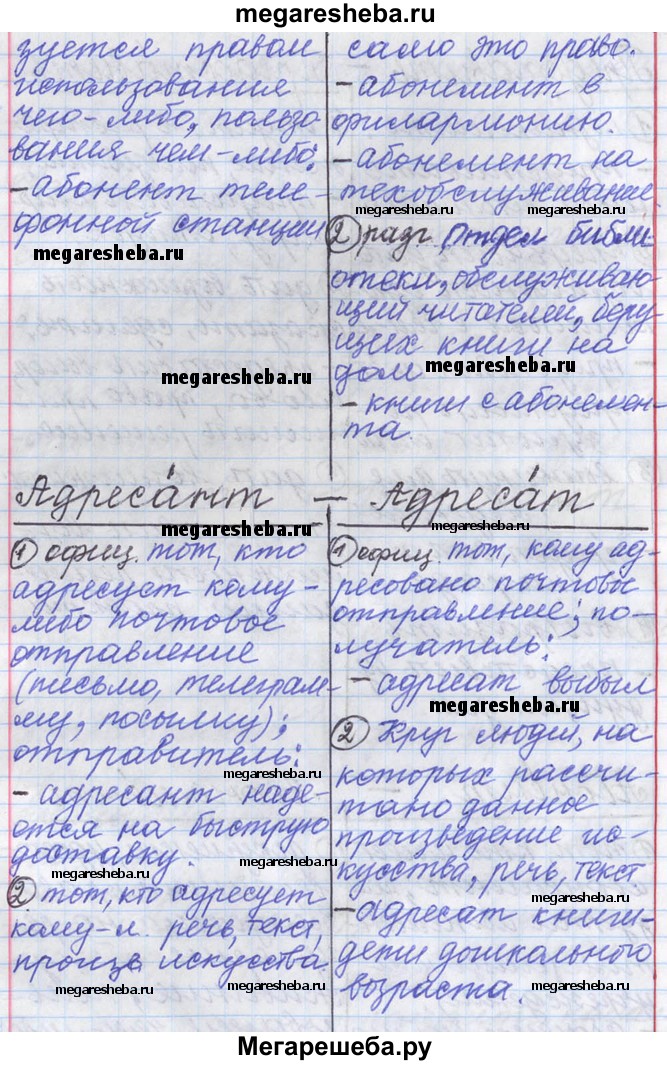 megaresheba.ru
зуется правом
использования
чего-либо, пользо
вания чем-либо:
- абонент теле-
фонной станции
megaresheba.ru
megaresheba.ru
само это право.
- абонемент в
филармонию.
- абонемент на
техобслуживание
megaresheba.ru megaresheba.ru
2) разг. Отдел библи
отеки, обслуживаю-
щий читателей, беру
щих книги на
дом
megaresheba.ru
- книги с абонемен-
та.
Адреса́нт — Адреса́т
megaresheba.ru
megaresheba.ru
1) офиц. тот, кто
адресует кому-
либо почтовое
отправление
(письмо, телеграм-
му, посылку);
отправитель:
megaresheba.ru
- адресант наде-
ется на быструю
доставку.
megaresheba.ru
2) тот, кто адресует
кому-л. речь, текст,
произв искусства.
megaresheba.ru megaresheba.ru
1) офиц. тот, кому ад-
ресовано почтовое
отправление; по-
лучатель:
- адресат выбыл
megaresheba.ru
2) Круг людей, на
которых рассчи-
тано данное
произведение ис-
кусства, речь, текст
megaresheba.ru
- адресат книги-
дети дошкольного
возраста.
megaresheba.ru megaresheba.ru
Мегарешеба.ру